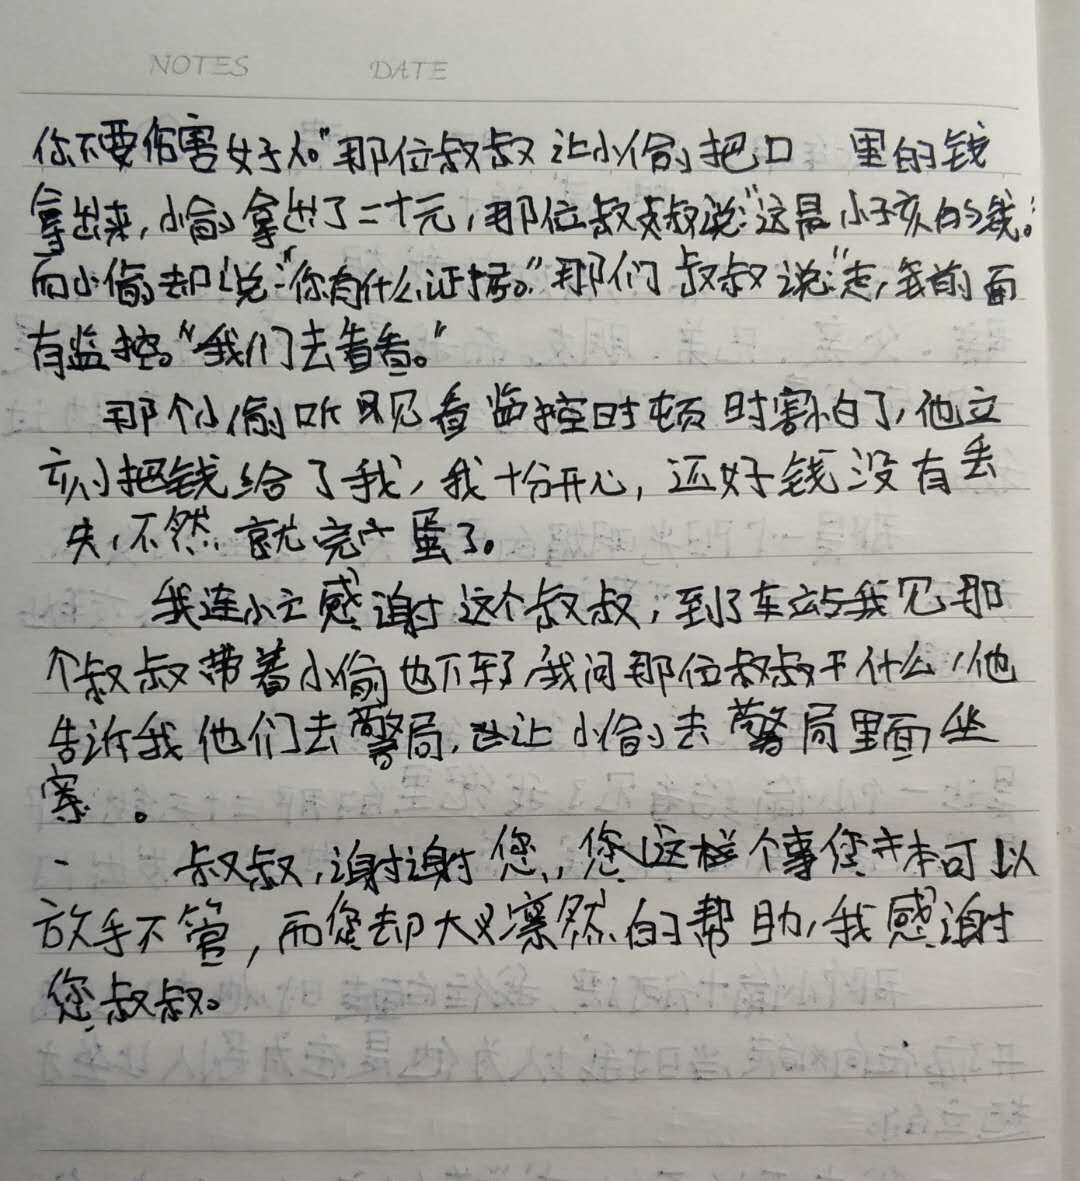 NOTES DATE
你不要伤害好人。"那位叔叔让小偷把口 里的钱
拿出来,小偷拿出了二十元,那位叔叔说:"这是小孩的钱。"
而小偷却说:"你有什么证据。"那们叔叔说:"走,我前面
有监控。""我们去看看。"
那个小偷听见看监控时顿时害怕了,他立
刻把钱给了我,我十分开心,还好钱没有丢
失,不然,就完蛋了。
我连忙感谢这个叔叔,到了车站我见那
个叔叔带着小偷也下车了,我问那位叔叔干什么,他
告诉我他们去警局,让小偷去警局里面坐
。
叔叔,谢谢您,您这样个事您并本可以
放手不管,而您却大义凛然的帮助,我感谢
您叔叔。